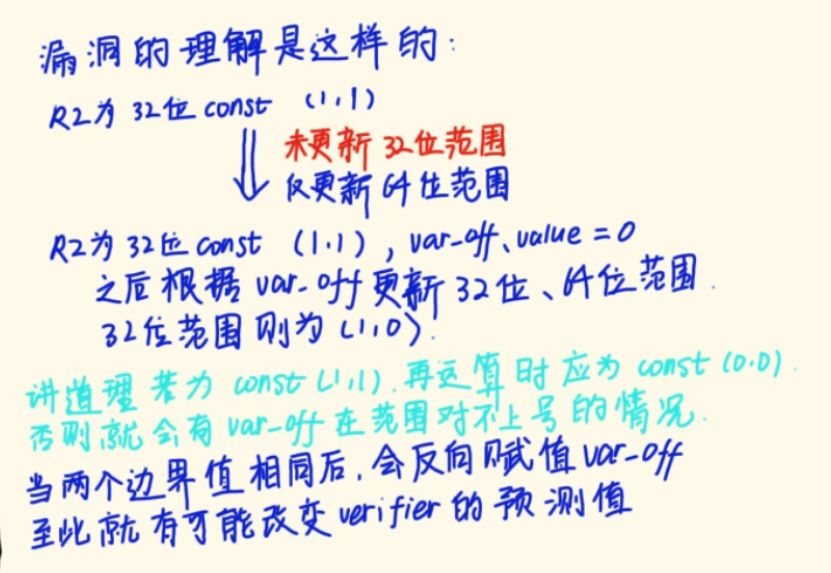 漏洞的理解是这样的:
R2为 32位 const (1,1)
未更新 32位范围
仅更新 64位范围
R2为 32位 const (1,1), var_off、value = 0
之后根据 var_off 更新 32位、64位范围.
32位范围则为 (1,0).
讲道理若为 const (1,1).再运算时应为 const (0,0).
否则就会有 var_off 在范围对不上号的情况.
当两个边界值相同后,会反向赋值 var_off
至此就有可能改变 verifier 的预测值